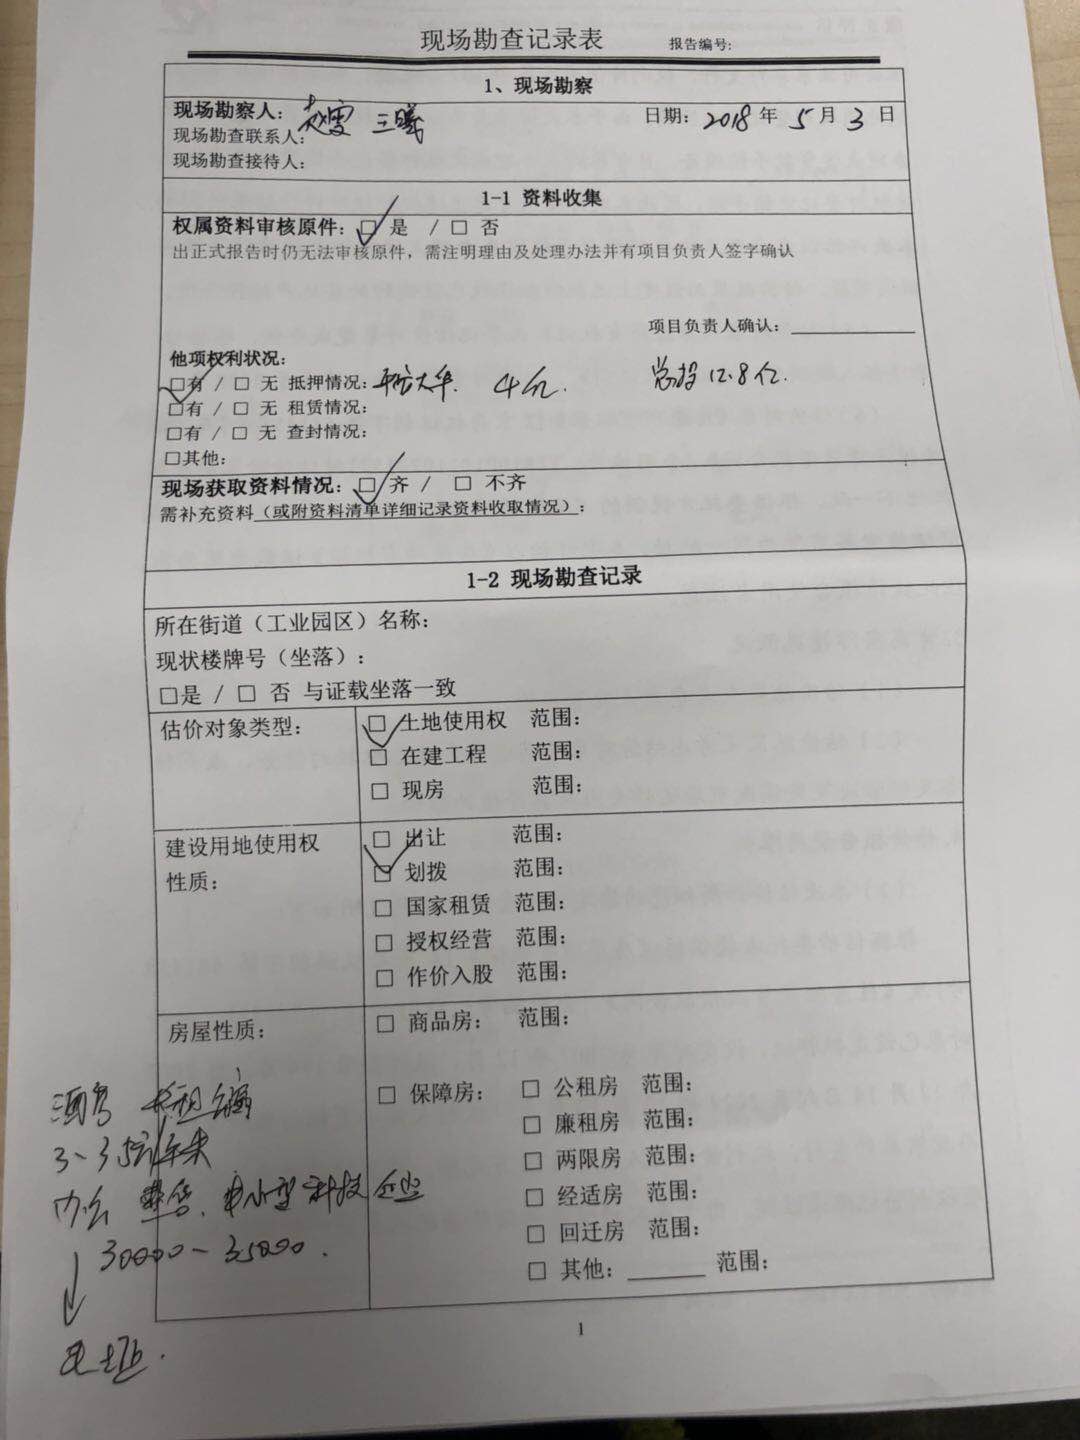 现场勘查记录表 报告编号:
1、现场勘察
现场勘察人: 赵雪 王曦 日期: 2018 年 5 月 3 日
现场勘查联系人:
现场勘查接待人:
1-1 资料收集
权属资料审核原件: ☑ 是 / □ 否
出正式报告时仍无法审核原件，需注明理由及处理办法并有项目负责人签字确认
项目负责人确认:
他项权利状况:
☑有 / □ 无 抵押情况: 4亿. 总投 12.8亿.
□有 / □ 无 租赁情况:
□有 / □ 无 查封情况:
□其他:
现场获取资料情况: ☑ 齐 / □ 不齐
需补充资料(或附资料清单详细记录资料收取情况):
1-2 现场勘查记录
所在街道（工业园区）名称:
现状楼牌号（坐落）:
□是 / □ 否 与证载坐落一致
估价对象类型: ☑ 土地使用权 范围:
□ 在建工程 范围:
□ 现房 范围:
建设用地使用权性质: ☑ 出让 范围:
□ 划拨 范围:
□ 国家租赁 范围:
□ 授权经营 范围:
□ 作价入股 范围:
房屋性质: □ 商品房: 范围:
□ 保障房: □ 公租房 范围:
□ 廉租房 范围:
□ 两限房 范围:
□ 经适房 范围:
□ 回迁房 范围:
□ 其他: ______ 范围:
办公 中小型科技企业
30000~35000.
1